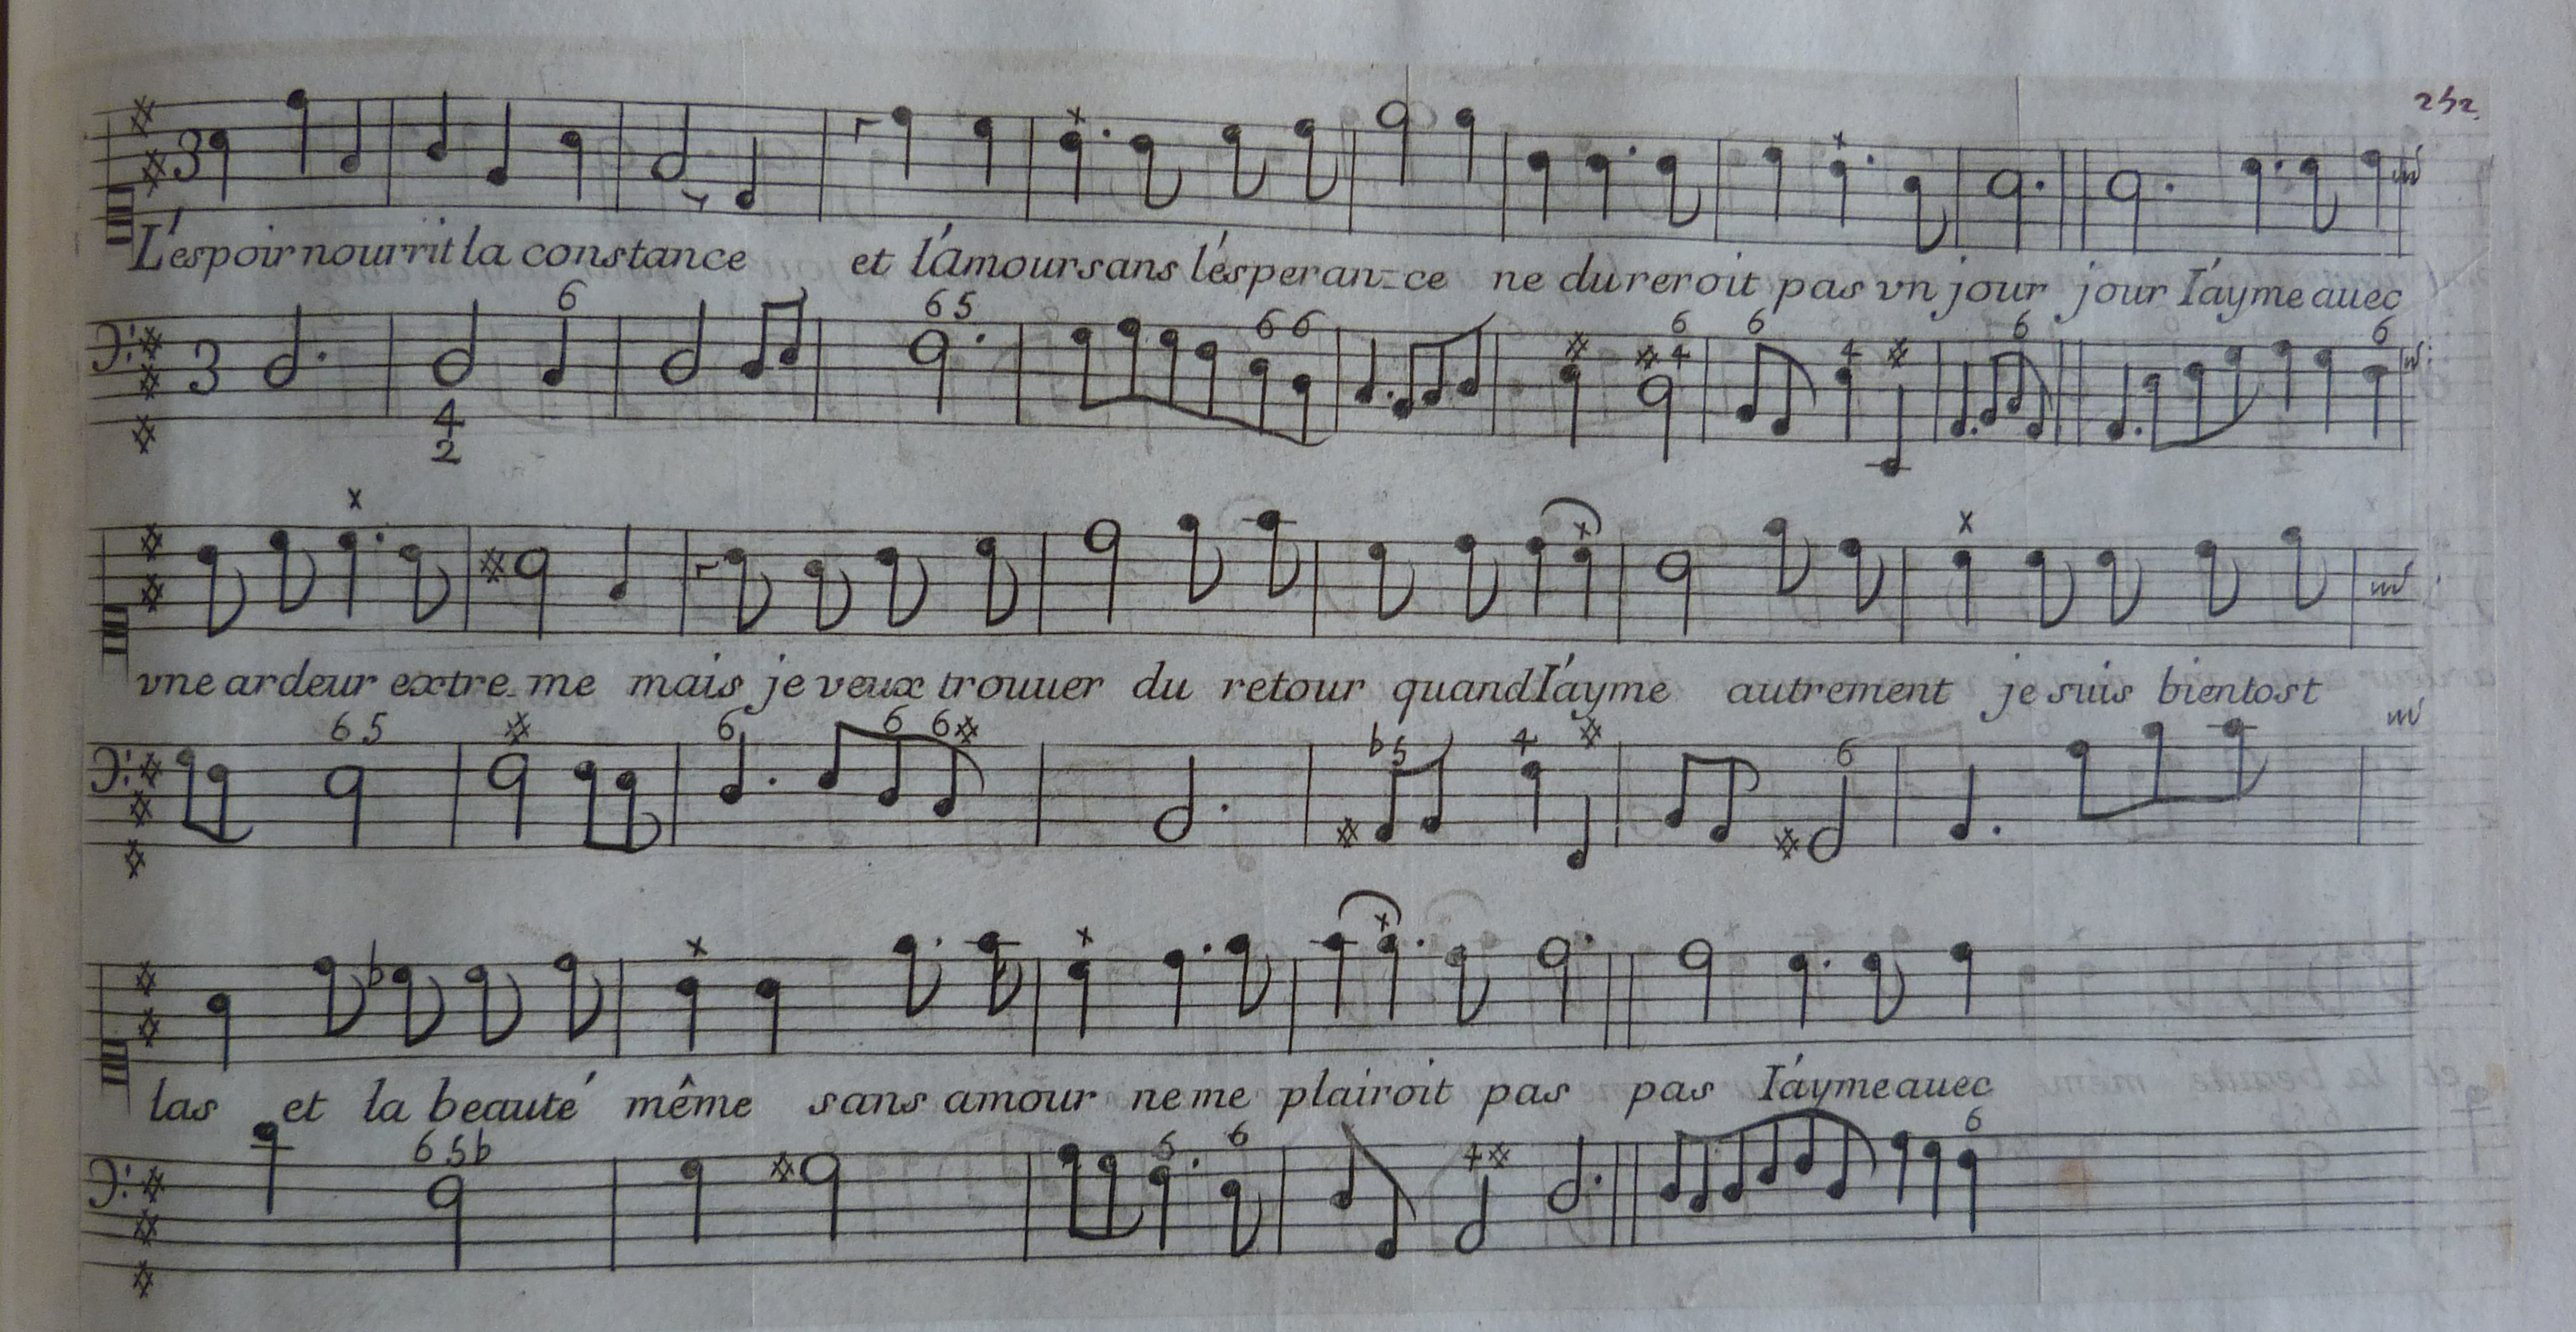 252
3
L'espoir nourrit la constance et l'amour sans l'esperan-ce ne dureroit pas vn jour jour I'ayme auec
6 6 5 6 6 6 4 6 4 6 6
3
4
2
vne ardeur extre-me mais je veux trouuer du retour quand I'ayme autrement je suis bientost
6 5 6 6 6 b5 4 6
las et la beauté même sans amour ne me plairoit pas pas I'ayme auec
6 5b 6 6 4 6